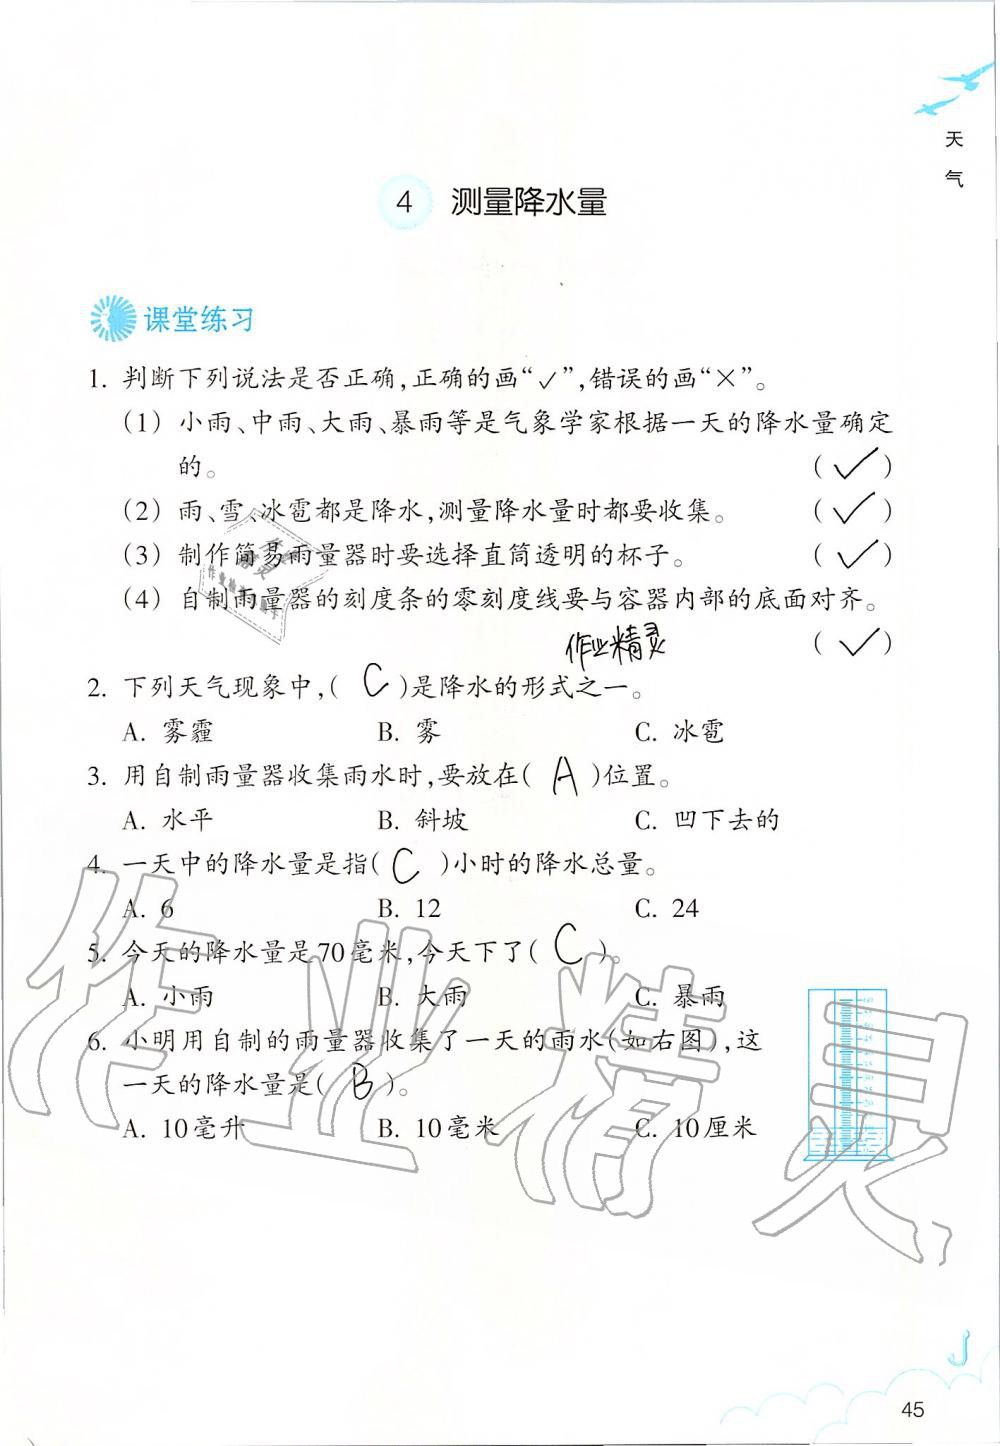 天
气
4 测量降水量
课堂练习
1. 判断下列说法是否正确,正确的画“✓”,错误的画“×”。
(1) 小雨、中雨、大雨、暴雨等是气象学家根据一天的降水量确定
的。 (✓)
(2) 雨、雪、冰雹都是降水,测量降水量时都要收集。 (✓)
(3) 制作简易雨量器时要选择直筒透明的杯子。 (✓)
(4) 自制雨量器的刻度条的零刻度线要与容器内部的底面对齐。
作业精灵 (✓)
2. 下列天气现象中,( C )是降水的形式之一。
A. 雾霾 B. 雾 C. 冰雹
3. 用自制雨量器收集雨水时,要放在( A )位置。
A. 水平 B. 斜坡 C. 凹下去的
4. 一天中的降水量是指( C )小时的降水总量。
A. 6 B. 12 C. 24
5. 今天的降水量是70毫米,今天下了( C )。
A. 小雨 B. 大雨 C. 暴雨
6. 小明用自制的雨量器收集了一天的雨水(如右图),这
一天的降水量是( B )。
A. 10毫升 B. 10毫米 C. 10厘米
作业精灵
45